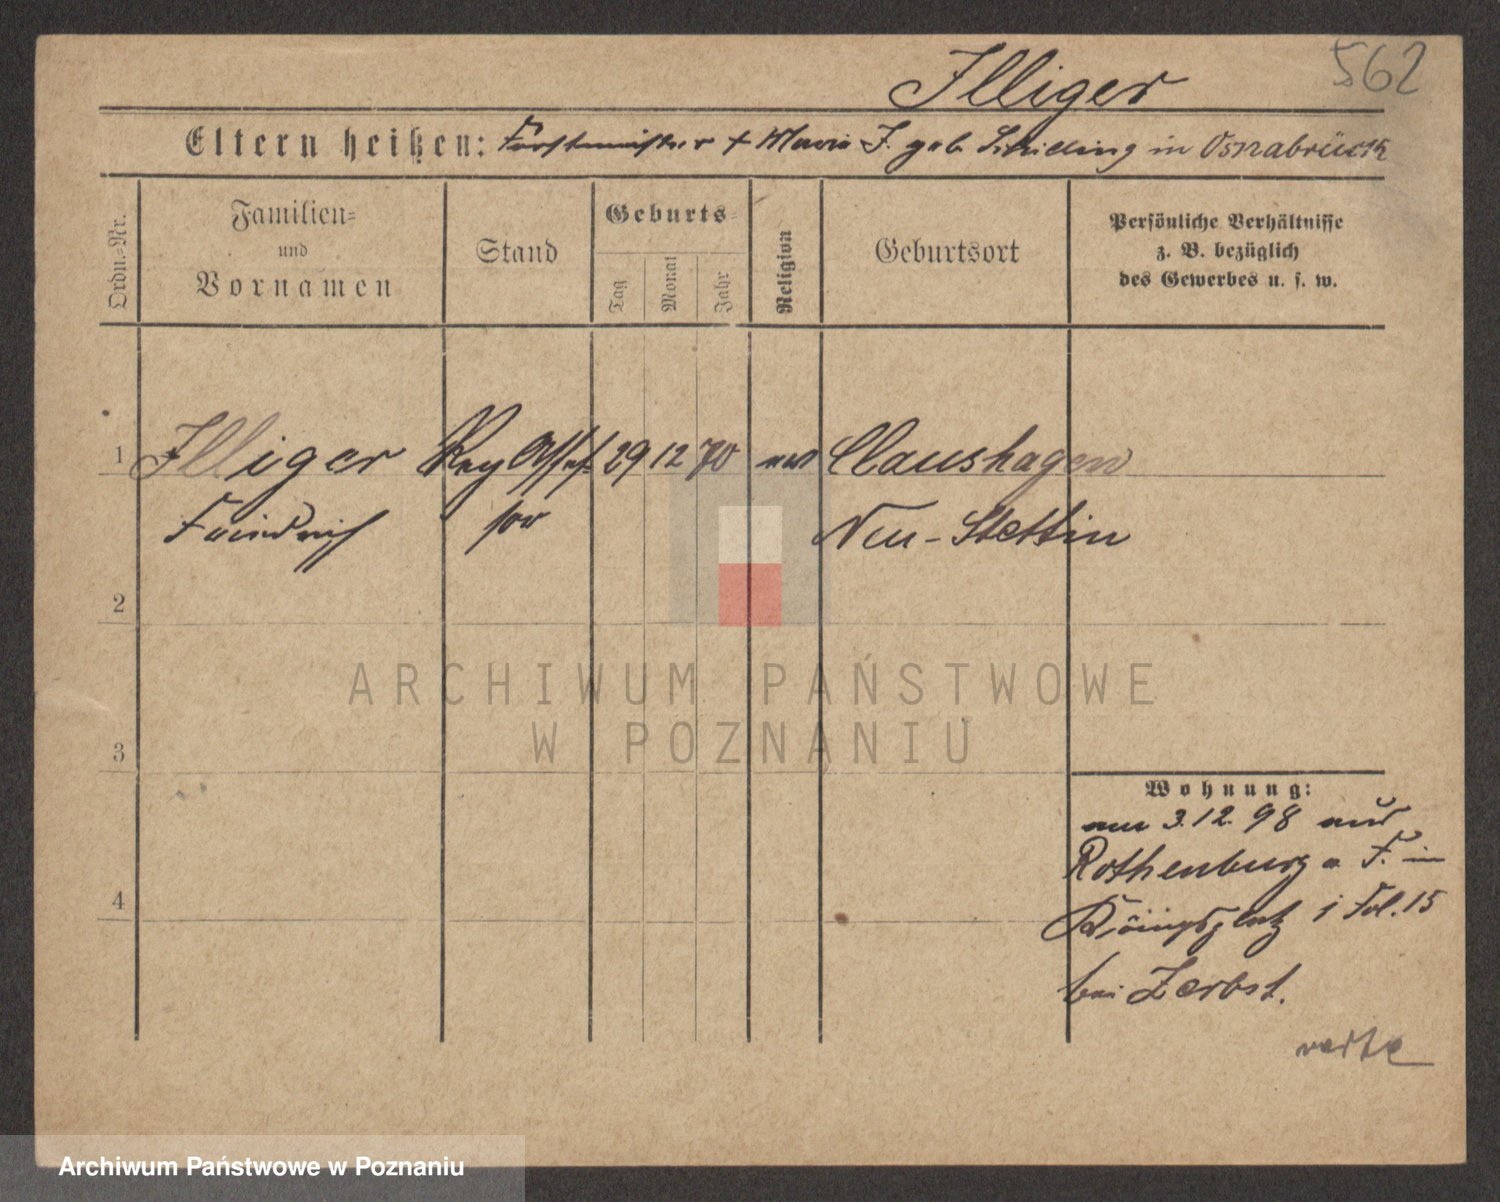 562
Illiger
Eltern heißen: Forstmeister + Marie I. geb. in Osnabrück
Ordn.-Nr.
Familien-
und
Vornamen
Stand
Geburts-
Tag
Monat
Jahr
Religion
Geburtsort
Persönliche Verhältnisse
z. B. bezüglich
des Gewerbes u. s. w.
1 Illiger Reg Asses- 29 12 70 ev Claushagen
Friedrich sor Neu-Stettin
2
ARCHIWUM PAŃSTWOWE
W POZNANIU
3
Wohnung:
am 3.12.98 aus
Rothenburg a. F. in
Königsplatz j Fol. 15
bei Zerbst.
4
verte
Archiwum Państwowe w Poznaniu